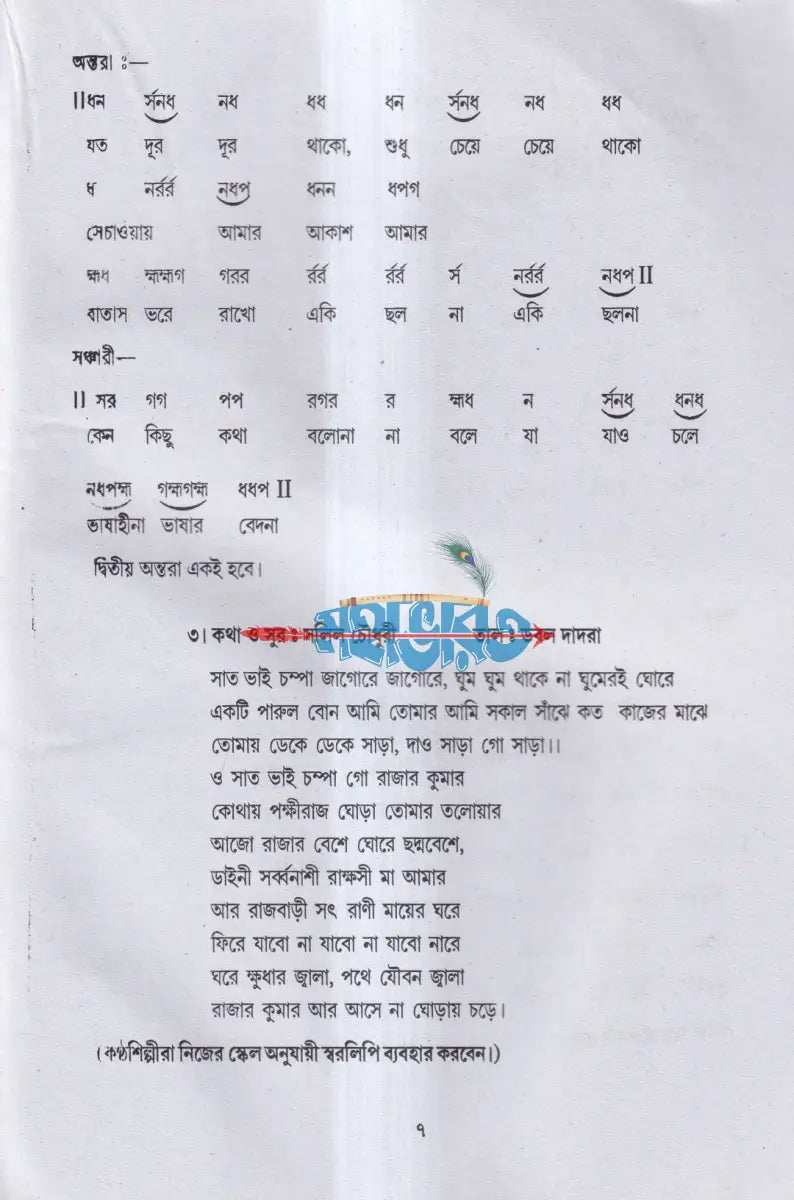 অন্তরা ঃ—
||ধন র্সনধ নধ ধধ ধন র্সনধ নধ ধধ
যত দূর দূর থাকো, শুধু চেয়ে চেয়ে থাকো
ধ নর্রর্র নধপ ধনন ধপগ
সেচাওয়ায় আমার আকাশ আমার
হ্মধ হ্মহ্মগ গরর র্রর্র র্রর্র র্স নর্রর্র নধপ II
বাতাস ভরে রাখো একি ছল না একি ছলনা
সঞ্চারী—
|| সর গগ পপ রগর র হ্মধ ন র্সনধ ধনধ
কেন কিছু কথা বলোনা না বলে যা যাও চলে
নধপহ্ম গহ্মগহ্ম ধধপ II
ভাষাহীনা ভাষার বেদনা
দ্বিতীয় অন্তরা একই হবে।
মহাভারত
৩। কথা ও সুর ঃ সলিল চৌধুরী তাল ঃ ডবল দাদরা
সাত ভাই চম্পা জাগোরে জাগোরে, ঘুম ঘুম থাকে না ঘুমেরই ঘোরে
একটি পারুল বোন আমি তোমার আমি সকাল সাঁঝে কত কাজের মাঝে
তোমায় ডেকে ডেকে সাড়া, দাও সাড়া গো সাড়া।।
ও সাত ভাই চম্পা গো রাজার কুমার
কোথায় পক্ষীরাজ ঘোড়া তোমার তলোয়ার
আজো রাজার বেশে ঘোরে ছদ্মবেশে,
ডাইনী সর্ব্বনাশী রাক্ষসী মা আমার
আর রাজবাড়ী সৎ রাণী মায়ের ঘরে
ফিরে যাবো না যাবো না যাবো নারে
ঘরে ক্ষুধার জ্বালা, পথে যৌবন জ্বালা
রাজার কুমার আর আসে না ঘোড়ায় চড়ে।
(কণ্ঠশিল্পীরা নিজের স্কেল অনুযায়ী স্বরলিপি ব্যবহার করবেন।)
৭